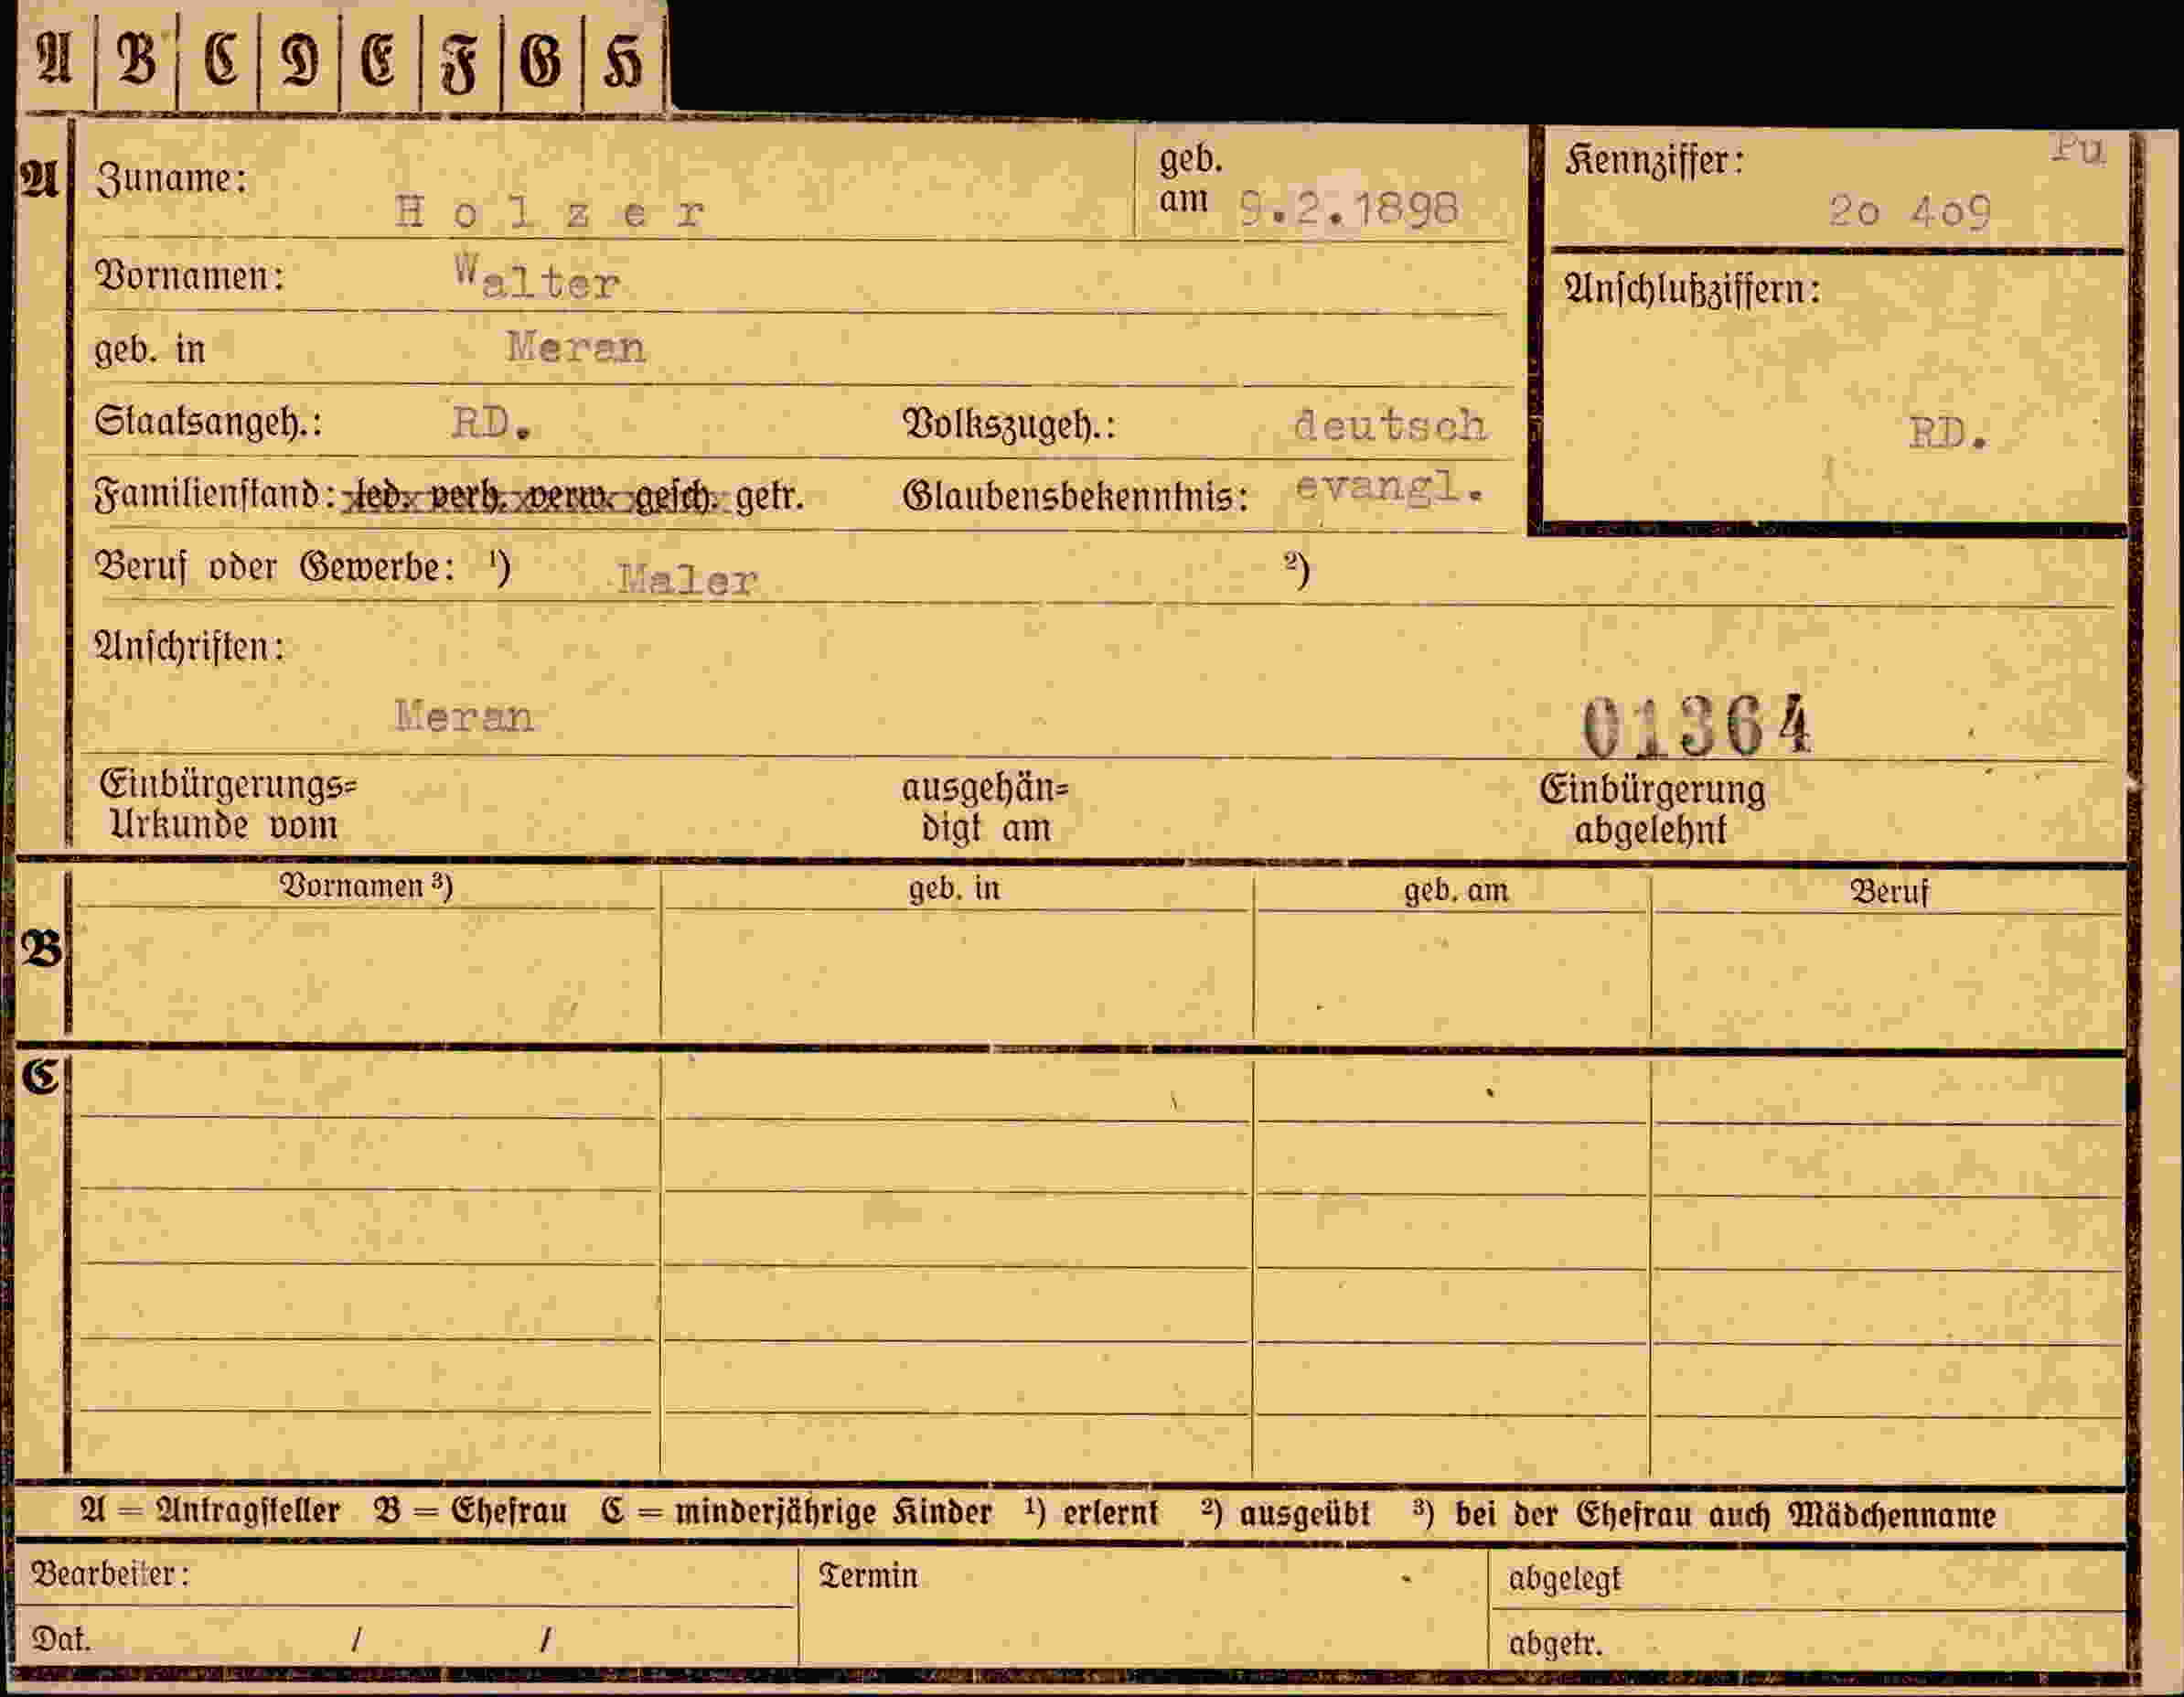 A B C D E F G H
A Zuname: Holzer geb. am 9.2.1898 Kennziffer: Pu 20 409
Vornamen: Walter Anschlußziffern:
geb. in Meran
Staatsangeh.: RD. Volkszugeh.: deutsch RD.
Familienstand: led. verh. verw. gesch. getr. Glaubensbekenntnis: evangl.
Beruf oder Gewerbe: ¹) Maler ²)
Anschriften:
Meran 01364
Einbürgerungs= ausgehän= Einbürgerung
Urkunde vom digt am abgelehnt
Vornamen ³) geb. in geb. am Beruf
B
C
A = Antragsteller B = Ehefrau C = minderjährige Kinder ¹) erlernt ²) ausgeübt ³) bei der Ehefrau auch Mädchenname
Bearbeiter: Termin abgelegt
Dat. / / abgetr.